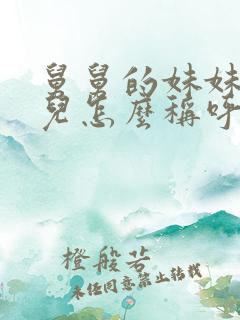 舅舅的妹妹
兒怎麼稱呼
橙般若
未經同意禁止轉載